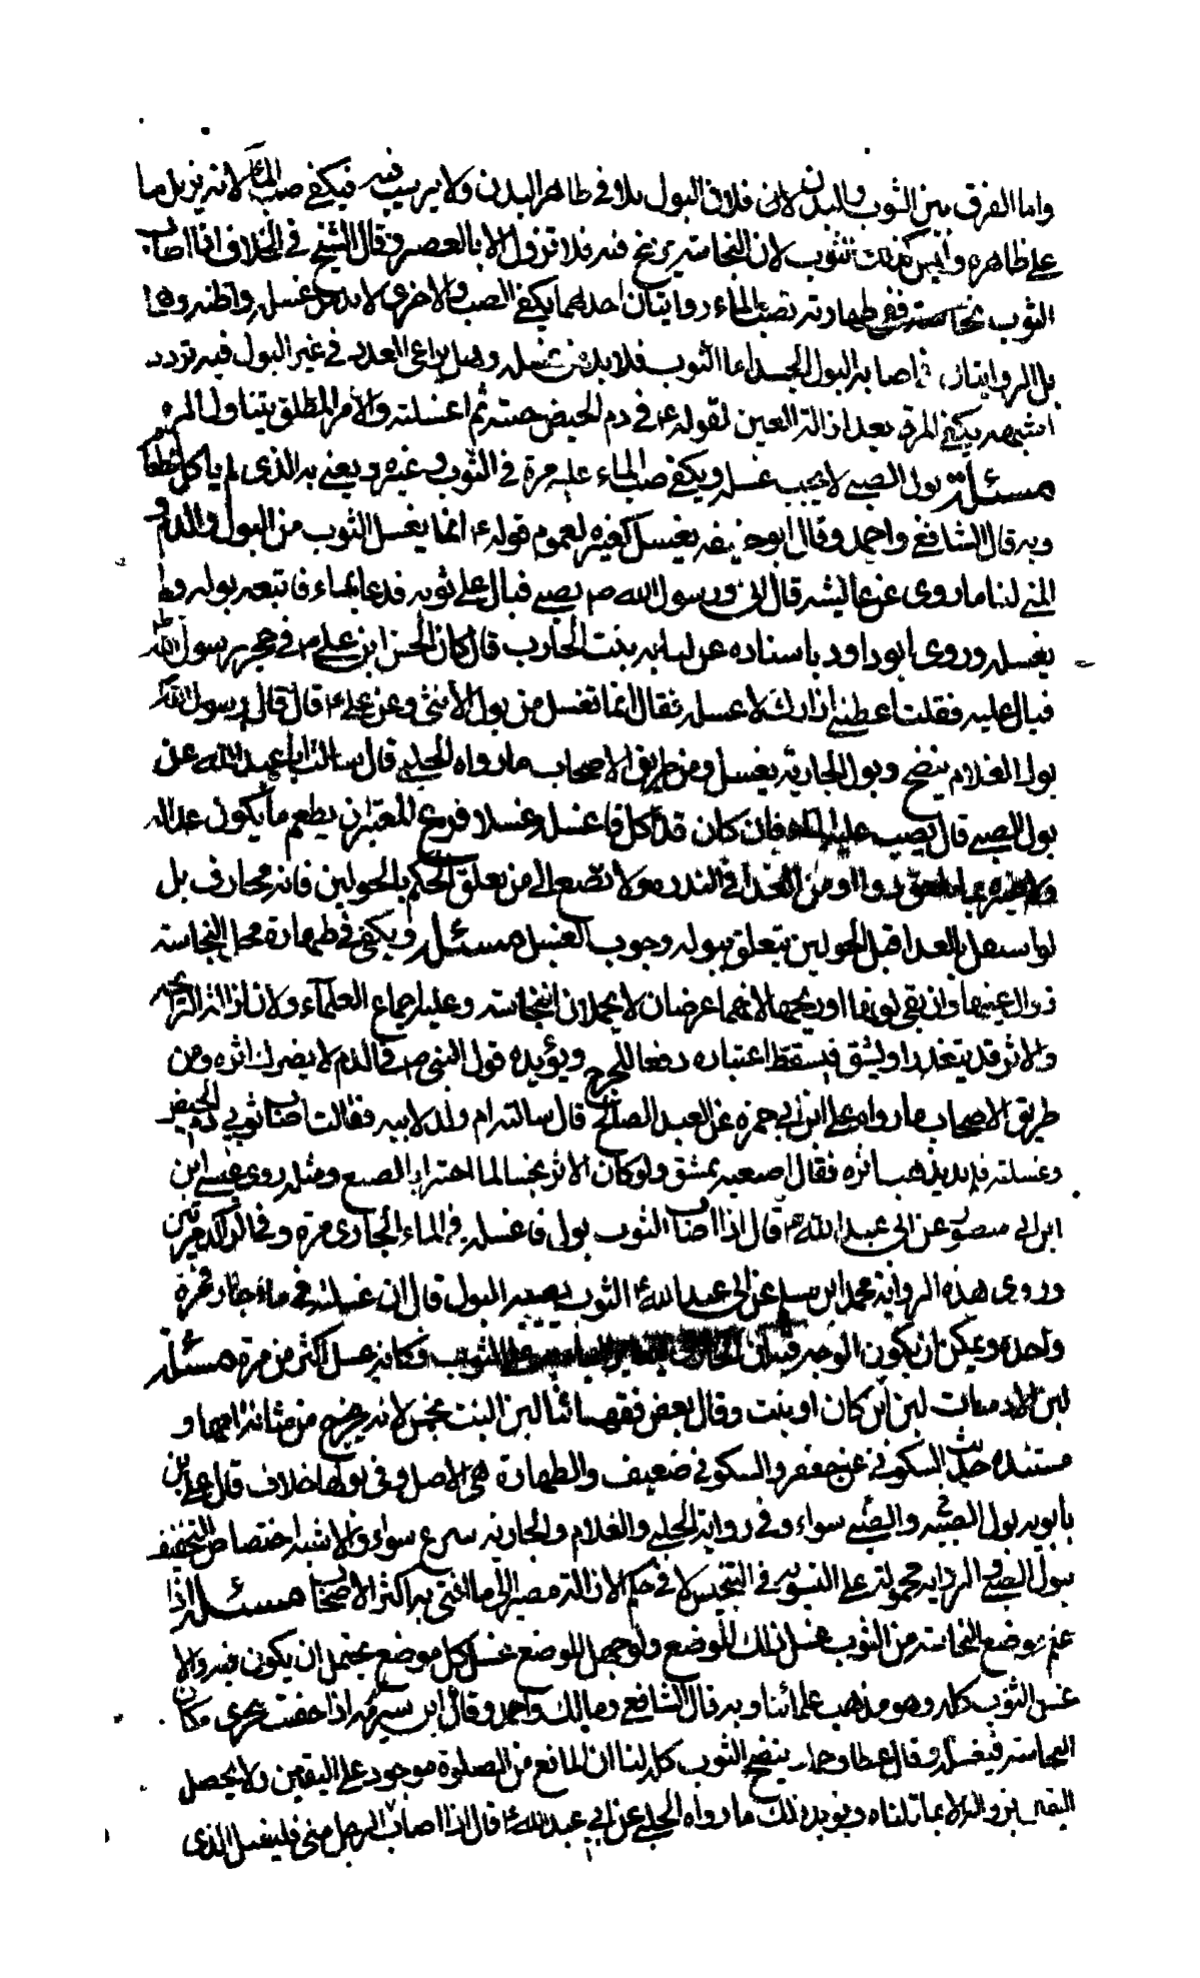 واما الفرق بين الثوب والبدن لان فلان البول يلاقي ظاهر البدن ولا يرسب فيه فيكفي صب الماء لانه يزيل ما
على ظاهره وليس كذلك الثوب لان النجاسة ترسخ فيه فلا تزول الا بالعصر وقال الشيخ في الخلاف اذا اصاب
الثوب نجاسة ففي طهارته بصب الماء روايتان احدهما يكفي الصب والاخرى لا بد من غسله واظنه وهما
بل الروايتان فيما اصابه البول الجسد اما الثوب فلا بد من غسله وهل يراعى العدد في غير البول فيه تردد
اشبهه يكفي المرة بعد ازالة العين لقوله ع في دم الحيض حتيه ثم اغسليه والامر المطلق يتناول المرة
مسئلة بول الصبي لا يجب غسله ويكفي صب الماء عليه مرة في الثوب وغيره ويعني به الذي لم ياكل الطعام
وبه قال الشافعي واحمد وقال ابو حنيفه يغسل كغيره لعموم قوله ع انما يغسل الثوب من البول والدم و
المني لنا ما روى عن عايشه قال اتى رسول الله ص بصبي فبال على ثوبه فدعا بماء فاتبعه بوله ولم
يغسله وروى ابو داود باسناده عن لبابه بنت الحارث قال كان الحسن ابن علي ع في حجر رسول الله
فبال عليه فقلت اعطني ازارك لاغسله فقال انما تغسل من بول الانثى وعن علي ع قال قال رسول الله
بول الغلام ينضح وبول الجارية يغسل ومن طريق الاصحاب ما رواه الحلبي قال سالت ابا عبد الله عن
بول الصبي قال يصب عليه الماء فان كان قد اكل فاغسله غسلا فرع المعتبر ان يطعم ما يكون غذاء له
ولا عبرة بما يلعق دواء او من الغذاء في الندرة ولا تصغ الى من يعلق الحكم بالحولين فانه مجازف بل
لو استقل بالغذاء قبل الحولين يتعلق ببوله وجوب الغسل مسئله ويكفي في طهارة محل النجاسة
زوال عينها وان بقي لونها او ريحها لانهما عرضان لا يحملان النجاسة وعليه اجماع العلماء ولان ازالة الرايحة
والاثر قد يتعذر او يشق فيسقط اعتباره دفعا للحرج ويؤيده قول النبي ص في الدم لا يضرك اثره ومن
طريق الاصحاب ما رواه علي ابن ابي حمزه عن العبد الصالح قال سالته ام ولد لابيه فقالت اصاب ثوبي دم الحيض
وغسلته فلم يذهب اثره فقال اصبغيه بمشق ولو كان الاثر نجسا لما اجتزا بالصبغ ومثله روى عيسى ابن
ابن ابي منصور عن ابي عبد الله ع قال اذا اصاب الثوب بول فاغسله في الماء الجاري مرة وفي الراكد مرتين
وروى هذه الرواية محمد ابن مسلم عن ابي عبد الله ع الثوب يصيبه البول قال ان غسلته في ماء جار فمرة
واحدة ويمكن ان يكون الوجه فيه ان الجاري على الثوب فكانه غسل اكثر من مرة مسئله
لبن الادميات لبن ابن كان او بنت وقال بعض فقهائنا لبن البنت نجس لانه يخرج من مثانة امها و
مستنده حديث السكوني عن جعفر والسكوني ضعيف والطهارة هي الاصل وفي بولها خلاف قال علي بن
بابويه بول الصبيه والصبي سواء وفي رواية الحلبي والغلام والجارية شرع سواء والاشبه اختصاص التخفيف
ببول الصبي والرواية محمولة على التسويه في التنجيس لا في حكم الازالة مصيرا الى ما افتى به اكثر الاصحاب مسئله اذا
علم موضع النجاسة من الثوب غسل ذلك الموضع ولو جهل الموضع غسل كل موضع يحتمل ان يكون فيه والا
غسل الثوب كله وهو مذهب علمائنا وبه قال الشافعي ومالك واحمد وقال ابن سيرين اذا خفيت تحرى مكان
النجاسة فيغسله وقال عطا وحماد ينضح الثوب كله لنا ان المانع من الصلوة موجود على اليقين ولا يحصل
اليقين بزواله الا بما قلناه ويؤيد ذلك ما رواه الحلبي عن ابي عبد الله ع قال اذا اصاب الرجل مني فليغسل الذي